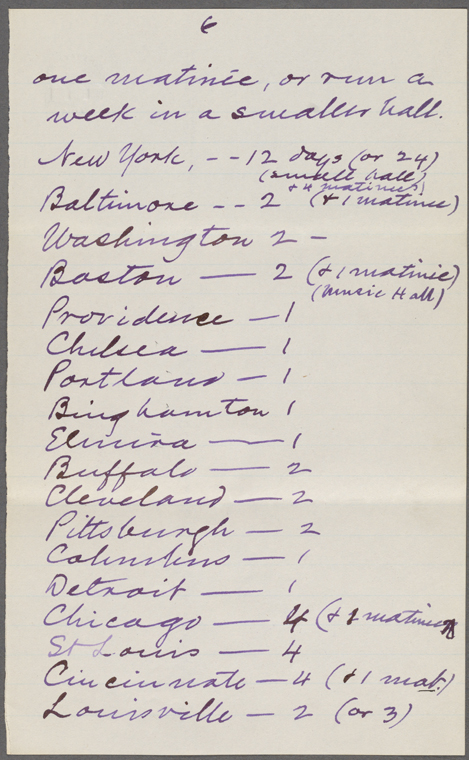 6
one matinée, or run a
week in a smaller hall.
New York, -- 12 days (or 24)
(small hall)
+4 matinees)
Baltimore -- 2 (+1 matinee)
Washington 2 -
Boston — 2 (+1 matinie)
(Music Hall)
Providence — 1
Chelsea — 1
Portland — 1
Binghamton 1
Elmira — 1
Buffalo — 2
Cleveland — 2
Pittsburgh — 2
Columbus — 1
Detroit — 1
Chicago — 4 (+1 matinee
St Louis — 4
Cincinnate — 4 (+1 mat.)
Louisville — 2 (or 3)